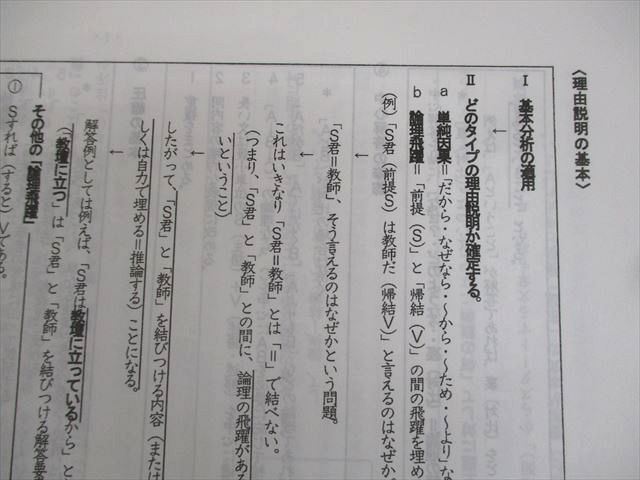 〈理由説明の基本〉
Ⅰ　基本分析の適用
↓
Ⅱ　どのタイプの理由説明か確定する。
a　単純因果＝「だから・なぜなら・～から・～ため・～より」な
b　論理飛躍＝「前提（S）」と「帰結（V）」の間の飛躍を埋め
（例）「S君（前提S）は教師だ（帰結V）」と言えるのはなぜか
↓
「S君＝教師」、そう言えるのはなぜかという問題。
↓
これはいきなり「S君＝教師」とは「＝」で結べない。
（つまり、「S君」と「教師」との間に、論理の飛躍がある
いということ）
↓
したがって、「S君」と「教師」を結びつける内容（または
しくは自力で埋める＝推論する）ことになる。
↓
解答例としては例えば、「S君は教壇に立っているから」と
（「教壇に立つ」は「S君」と「教師」を結びつける解答要
その他の「論理飛躍」
①　Sすれば（すると）Vである。